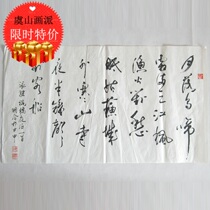 虞山画派
限时特价
月落乌啼
霜满天江枫
渔火对愁
眠姑苏城
外寒山寺
夜半钟声
到客船